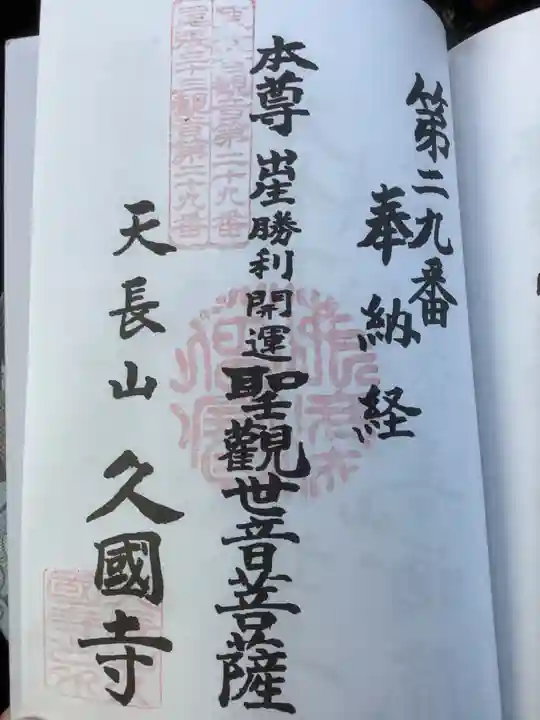 第二九番
奉納経
本尊 出生勝利開運 聖觀世音菩薩
天長山 久國寺
觀音第二十九番
三十三觀音第二十九番